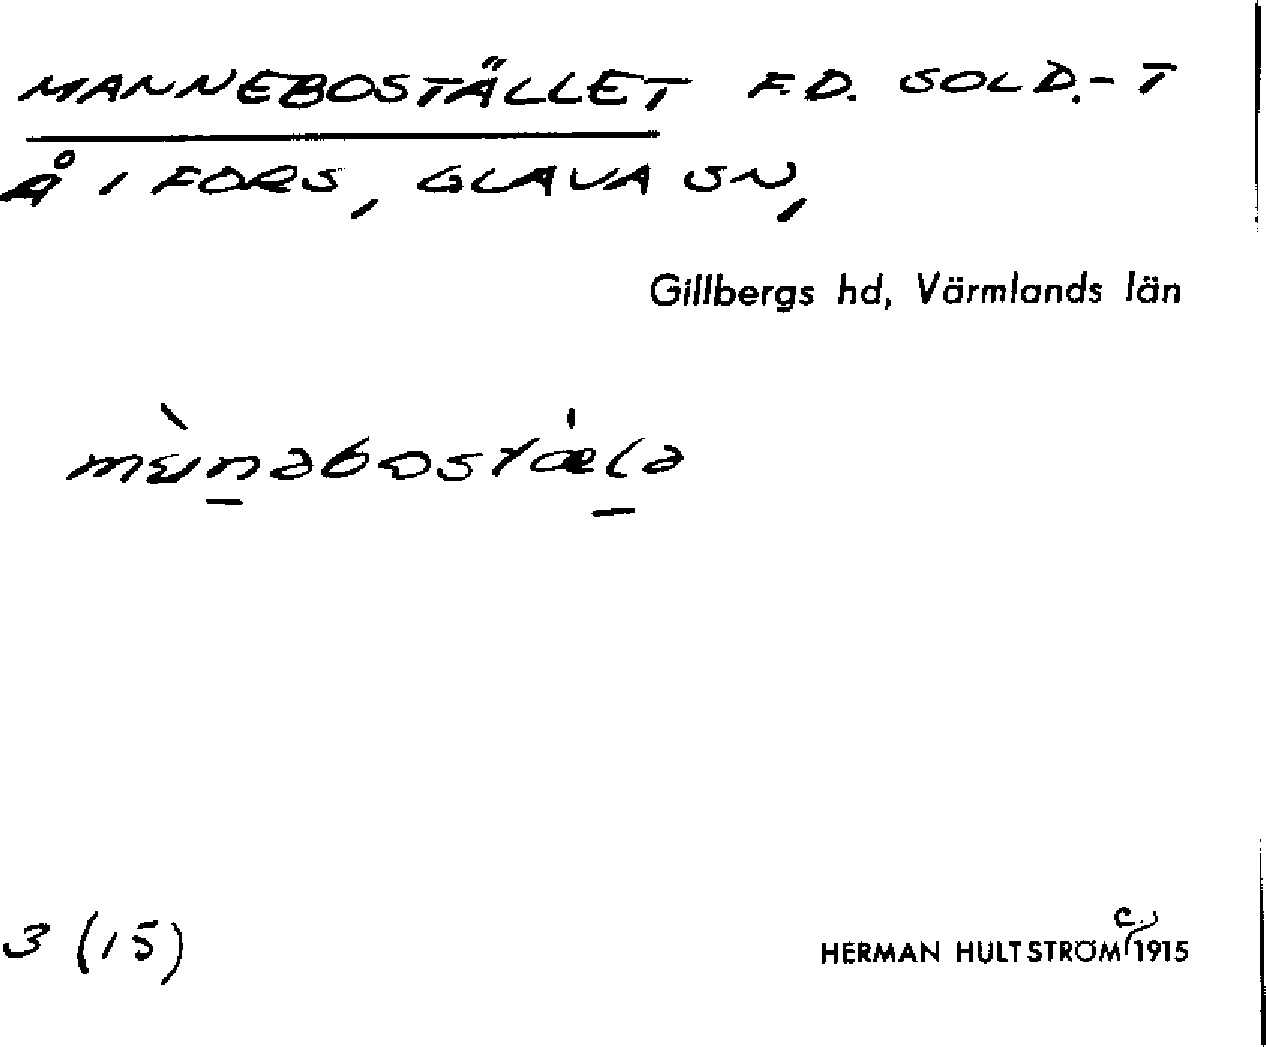 MANNEBOSTÄLLET F.D. SOLD.-T
Å 1 FORS, GLAVA SN,
Gillbergs hd, Värmlands län
3 (15)
HERMAN HULTSTRÖM c. 1915